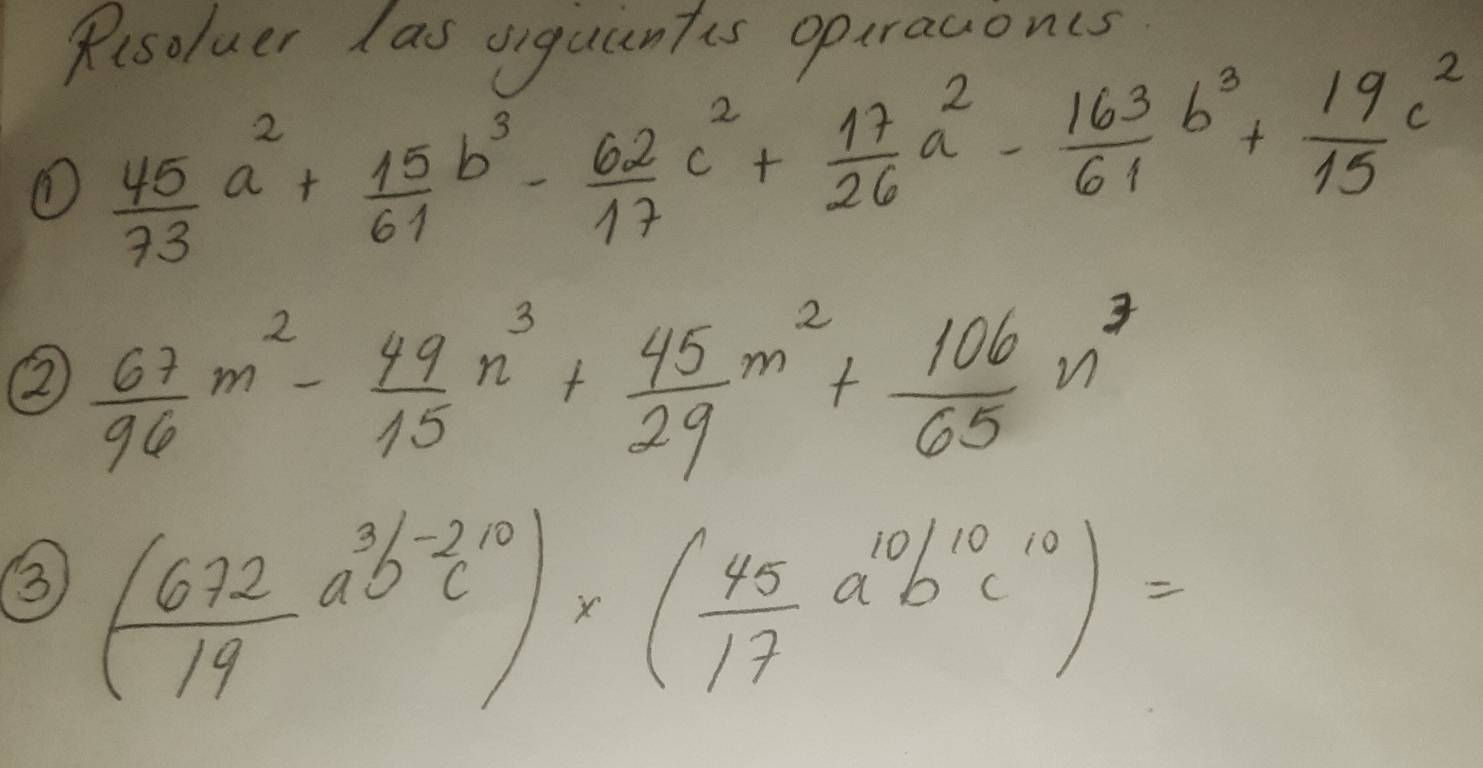 Resolver las siguientes operaciones.
① 45/73 a² + 15/61 b³ - 62/17 c² + 17/26 a² - 163/61 b³ + 19/15 c²
② 67/96 m² - 49/15 n³ + 45/29 m² + 106/65 n³
③ (672/19 a³b⁻²c¹⁰) x (45/17 a¹⁰b¹⁰c¹⁰) =